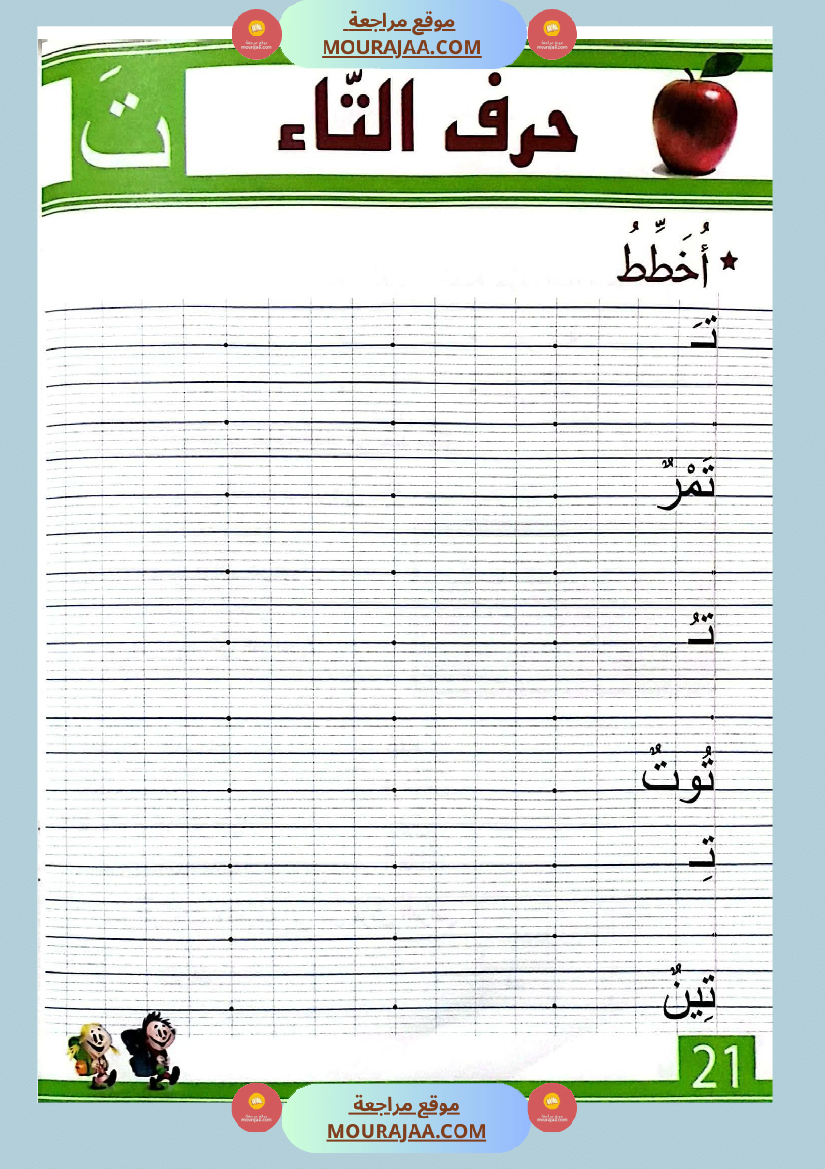 موقع مراجعة
MOURAJAA.COM
حرف التّاء
تَ
★ أُخَطِّطُ
تَـ
تَمْرٌ
تُـ
تُوتٌ
تِـ
تِينٌ
21
موقع مراجعة
MOURAJAA.COM